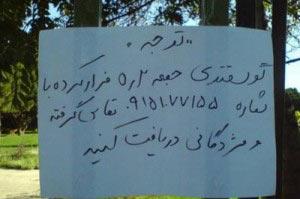 "توجه"
گوسفندی جمعه ۵ر۲ فرار کرده با
شماره ۰۹۱۵۱۰۷۷۱۵۵ تماس گرفته
و مژدگانی دریافت کنید